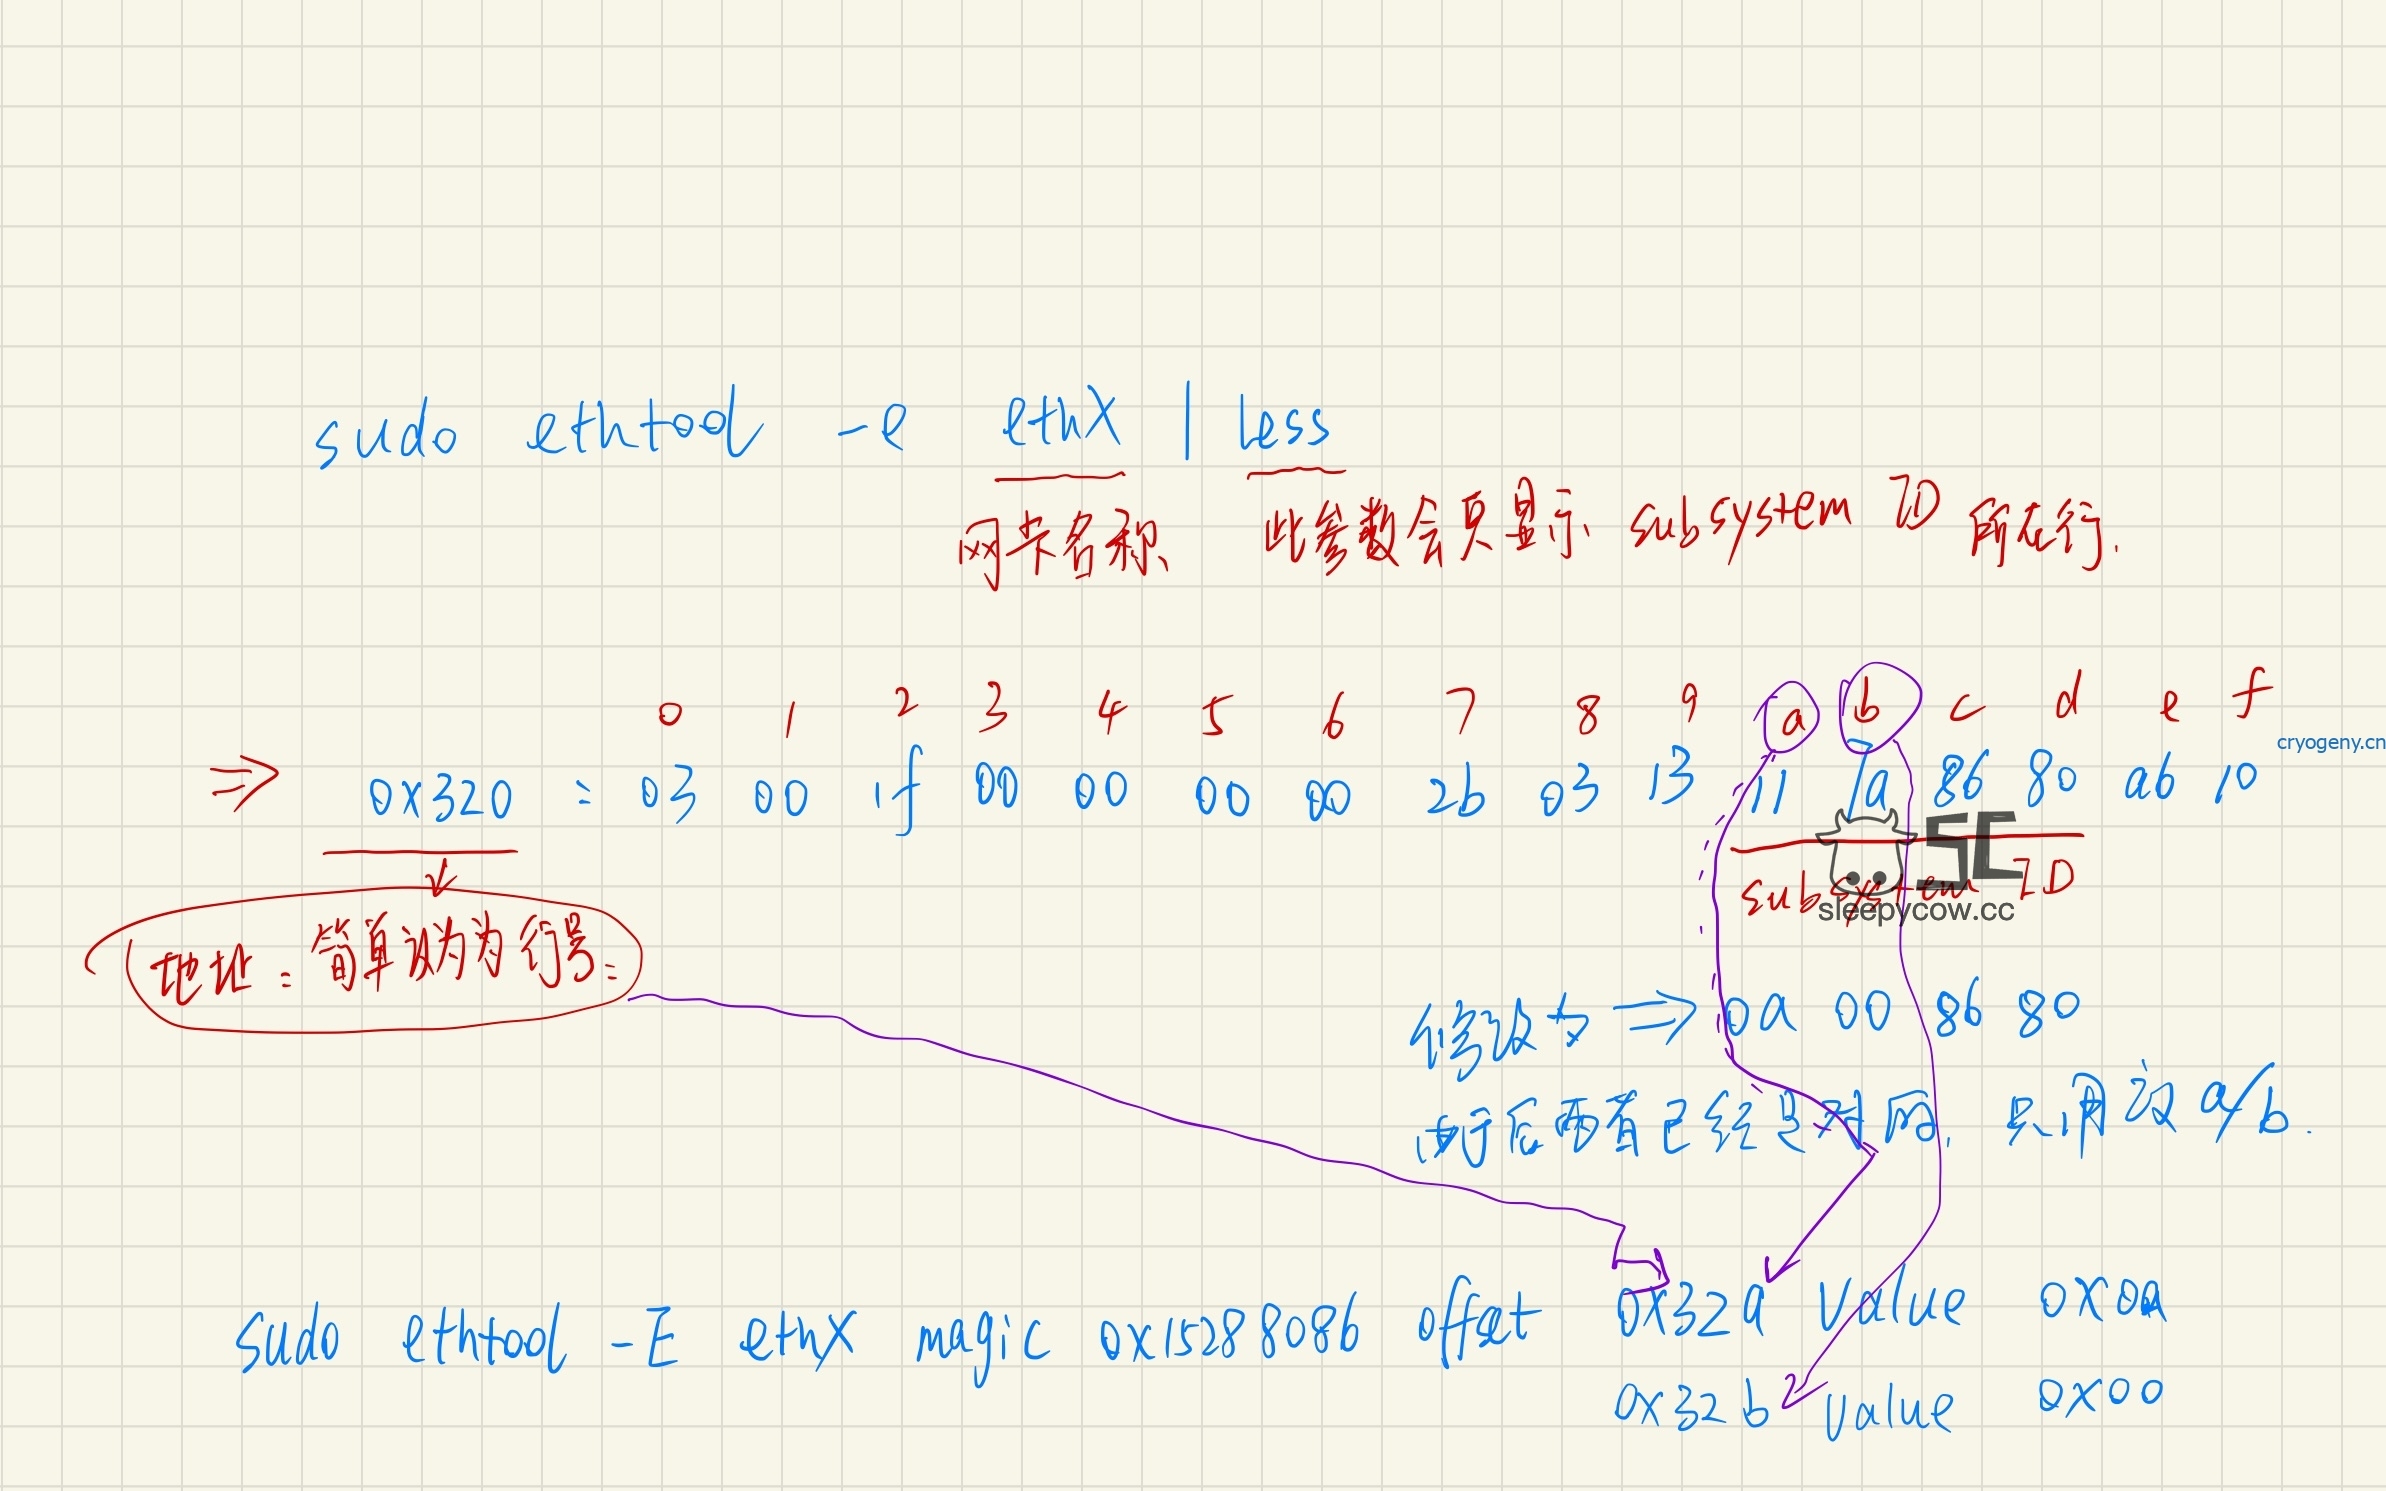 sudo ethtool -e ethX | less
网卡名称 此参数会只显示 subsystem ID 所在行.
0 1 2 3 4 5 6 7 8 9 a b c d e f
cryogeny.cn
⇒ 0x320 : 03 00 1f 00 00 00 00 2b 03 13 11 7a 86 80 ab 10
SC
subsystem ID
sleepycow.cc
地址：简单认为为行号：
修改为 ⇒ 0a 00 86 80
由于后两者已经是对的, 只用改 a/b.
sudo ethtool -E ethX magic 0x15288086 offset 0x32a value 0x0a
0x32b value 0x00